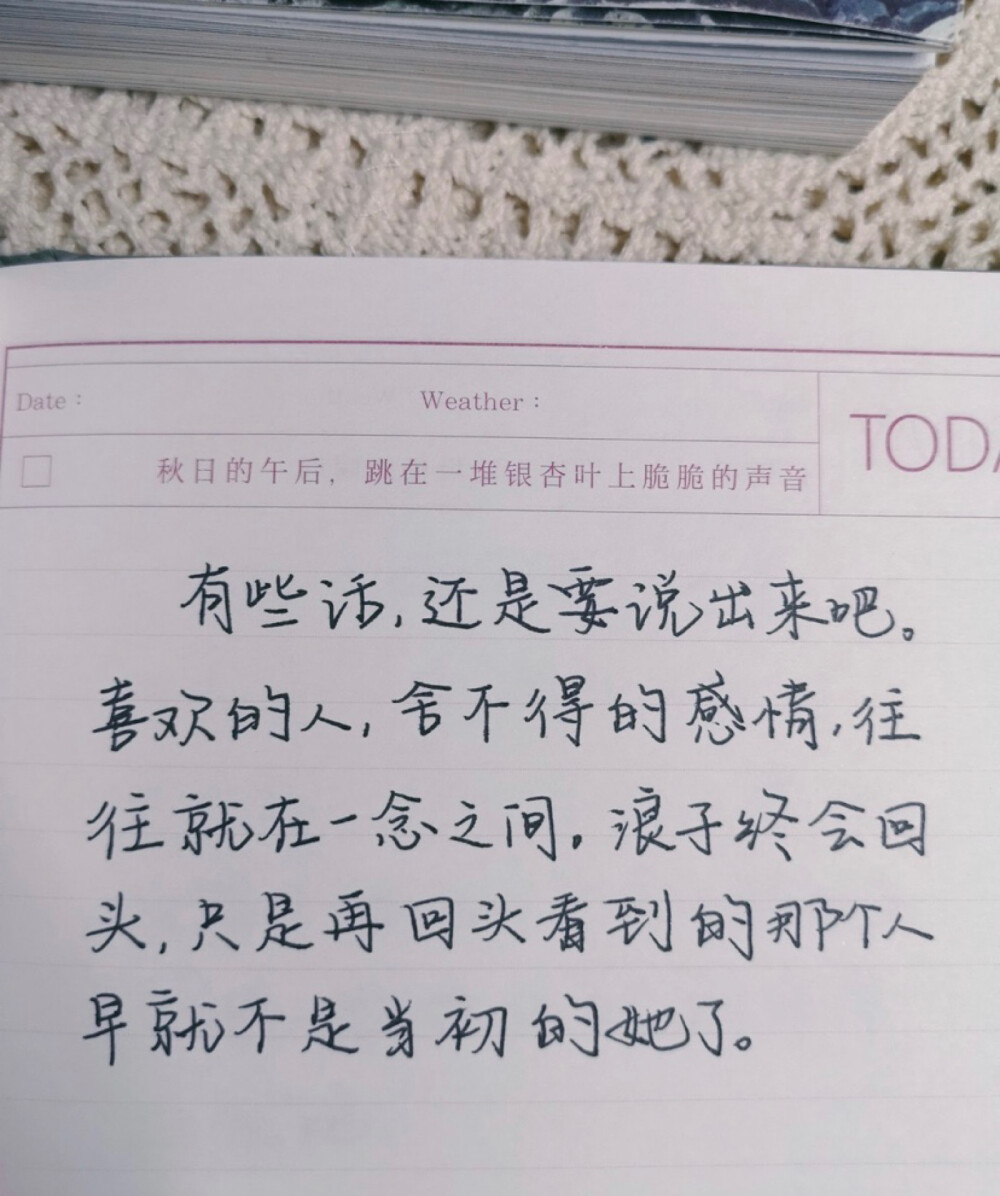 Date： Weather：
TODA
秋日的午后，跳在一堆银杏叶上脆脆的声音
有些话，还是要说出来吧。
喜欢的人，舍不得的感情，往
往就在一念之间。浪子终会回
头，只是再回头看到的那个人
早就不是当初的她了。